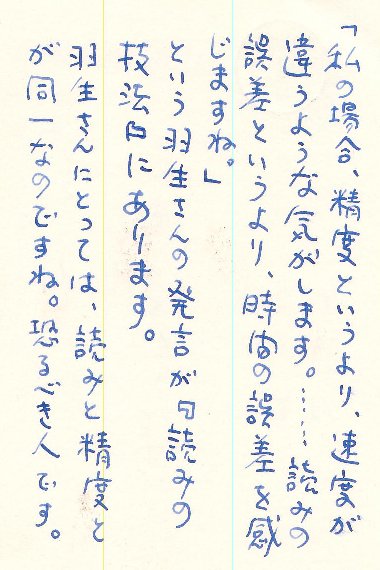 「私の場合、精度というより、速度が
違うような気がします。……読みの
誤差というより、時間の誤差を感
じますね。」
という羽生さんの発言が『読みの
技法』にあります。
羽生さんにとっては、読みと精度と
が同一なのですね。恐るべき人です。